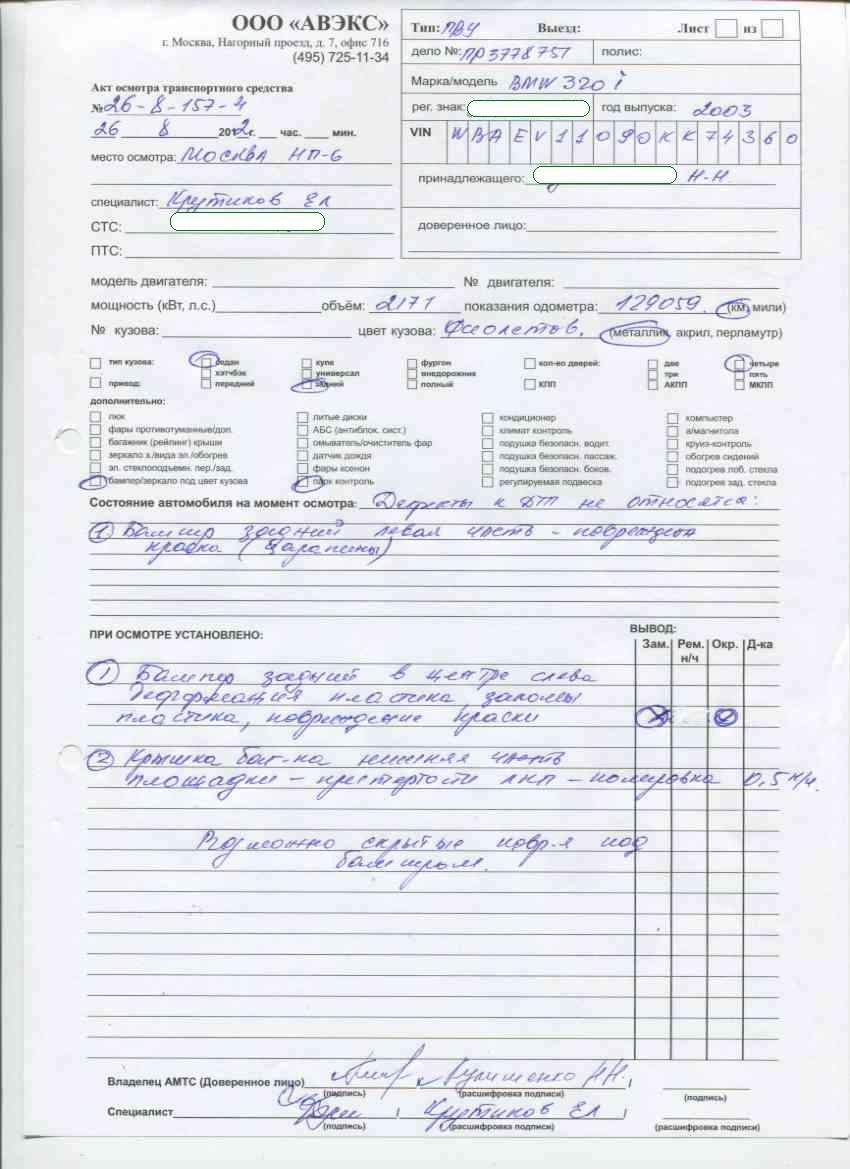 ООО «АВЭКС»
г. Москва, Нагорный проезд, д. 7, офис 716
(495) 725-11-34
Акт осмотра транспортного средства
№ 26-8-157-4
26 8 2012г. час. мин.
место осмотра: Москва НП-6
специалист: Крутиков ЕЛ
СТС:
ПТС:
Тип: ПВУ Выезд: Лист из
дело №: ПР3778751 полис:
Марка/модель BMW 320 i
рег. знак: год выпуска: 2003
VIN WBAEV11090KK74360
принадлежащего: Н.Н.
доверенное лицо:
модель двигателя: № двигателя:
мощность (кВт, л.с.) объём: 2171 показания одометра: 129059. (км, мили)
№ кузова: цвет кузова: Фиолетов. (металлик, акрил, перламутр)
тип кузова: седан купе фургон кол-во дверей: две четыре
хэтчбэк универсал внедорожник три пять
привод: передний задний полный КПП АКПП МКПП
дополнительно:
люк литые диски кондиционер компьютер
фары противотуманные/доп. АБС (антиблок. сист.) климат контроль а/магнитола
багажник (рейлинг) крыши омыватель/очиститель фар подушка безопасн. водит. круиз-контроль
зеркало з./вида эл./обогрев датчик дождя подушка безопасн. пассаж. обогрев сидений
эл. стеклоподъемн. пер./зад. фары ксенон подушка безопасн. боков. подогрев лоб. стекла
бампер/зеркало под цвет кузова парк контроль регулируемая подвеска подогрев зад. стекла
Состояние автомобиля на момент осмотра: Дефекты к ДТП не относятся:
1) Бампер задний левая часть - поврежден
краска (царапины)
ПРИ ОСМОТРЕ УСТАНОВЛЕНО: ВЫВОД:
Зам. Рем. н/ч Окр. Д-ка
1) Бампер задний в центре слева
деформация пластика, заломы
пластика, повреждение краски
2) Крышка баг-ка нижняя часть
площадки - потертости лкп - полировка 0,5 н/ч.
Возможно скрытые повр-я под
бампером.
Владелец АМТС (Доверенное лицо)
(подпись) (расшифровка подписи) (подпись)
Специалист Крутиков ЕЛ
(подпись) (расшифровка подписи) (расшифровка подписи)